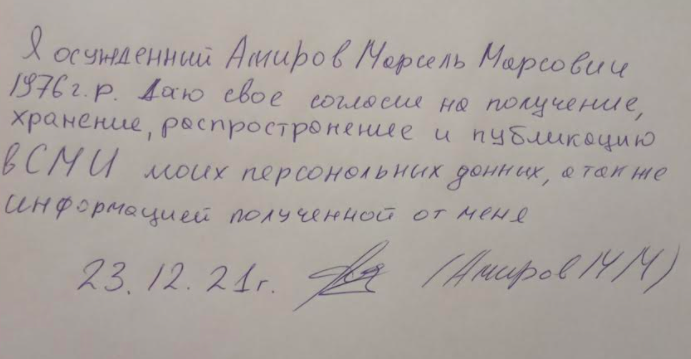 Я осужденний Амиров Марсель Марсович
1976г.р. Даю свое согласие на получение,
хранение, распространение и публикацию
в СМИ моих персональных данных, а так же
информацией полученной от меня
23.12.21г. (Амиров М М)